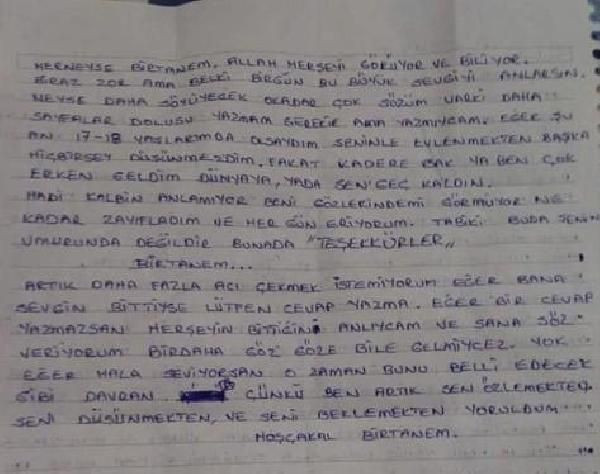 HERNEYSE BİRTANEM. ALLAH HERŞEYİ GÖRÜYOR VE BİLİYOR.
BİRAZ ZOR AMA BELKİ BİRGÜN BU BÜYÜK SEVGİYİ ANLARSIN.
NEYSE DAHA SÖYLÜYECEK OKADAR ÇOK SÖZÜM VARKİ DAHA
SAYFALAR DOLUSU YAZMAM GEREKİR AMA YAZMIYCAM. EĞER ŞU
AN 17-18 YAŞLARIMDA OLSAYDIM SENİNLE EVLENMEKTEN BAŞKA
HİÇBİRŞEY DÜŞÜNMEZDİM. FAKAT KADERE BAK YA BEN ÇOK
ERKEN GELDİM DÜNYAYA, YADA SEN GEÇ KALDIN.
HADİ KALBİN ANLAMIYOR BENİ GÖZLERİNDEMİ GÖRMÜYOR NE
KADAR ZAYIFLADIM VE HER GÜN ERİYORUM. TABİKİ BUDA SENİN
UMURUNDA DEĞİLDİR BUNADA "TEŞEKKÜRLER"
BİRTANEM...
ARTIK DAHA FAZLA ACI ÇEKMEK İSTEMİYORUM EĞER BANA
SEVGİN BİTTİYSE LÜTFEN CEVAP YAZMA. EĞER BİR CEVAP
YAZMAZSAN HERŞEYİN BİTTİĞİNİ ANLIYCAM VE SANA SÖZ
VERİYORUM BİRDAHA GÖZ GÖZE BİLE GELMİYCEZ. YOK
EĞER HALA SEVİYORSAN O ZAMAN BUNU BELLİ EDECEK
GİBİ DAVRAN ÇÜNKÜ BEN ARTIK SENİ ÖZLEMEKTEN,
SENİ DÜŞÜNMEKTEN, VE SENİ BEKLEMEKTEN YORULDUM
HOŞÇAKAL BİRTANEM.